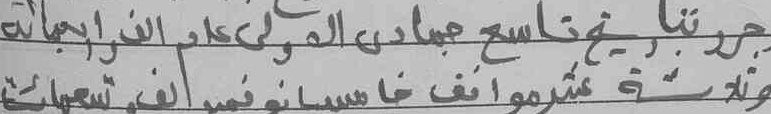 حرر بتاريخ تاسع جمادى الاولى عام الف وأربعمائة
وثلاثة عشر موافق خامس نوفمبر الف وتسعمائة